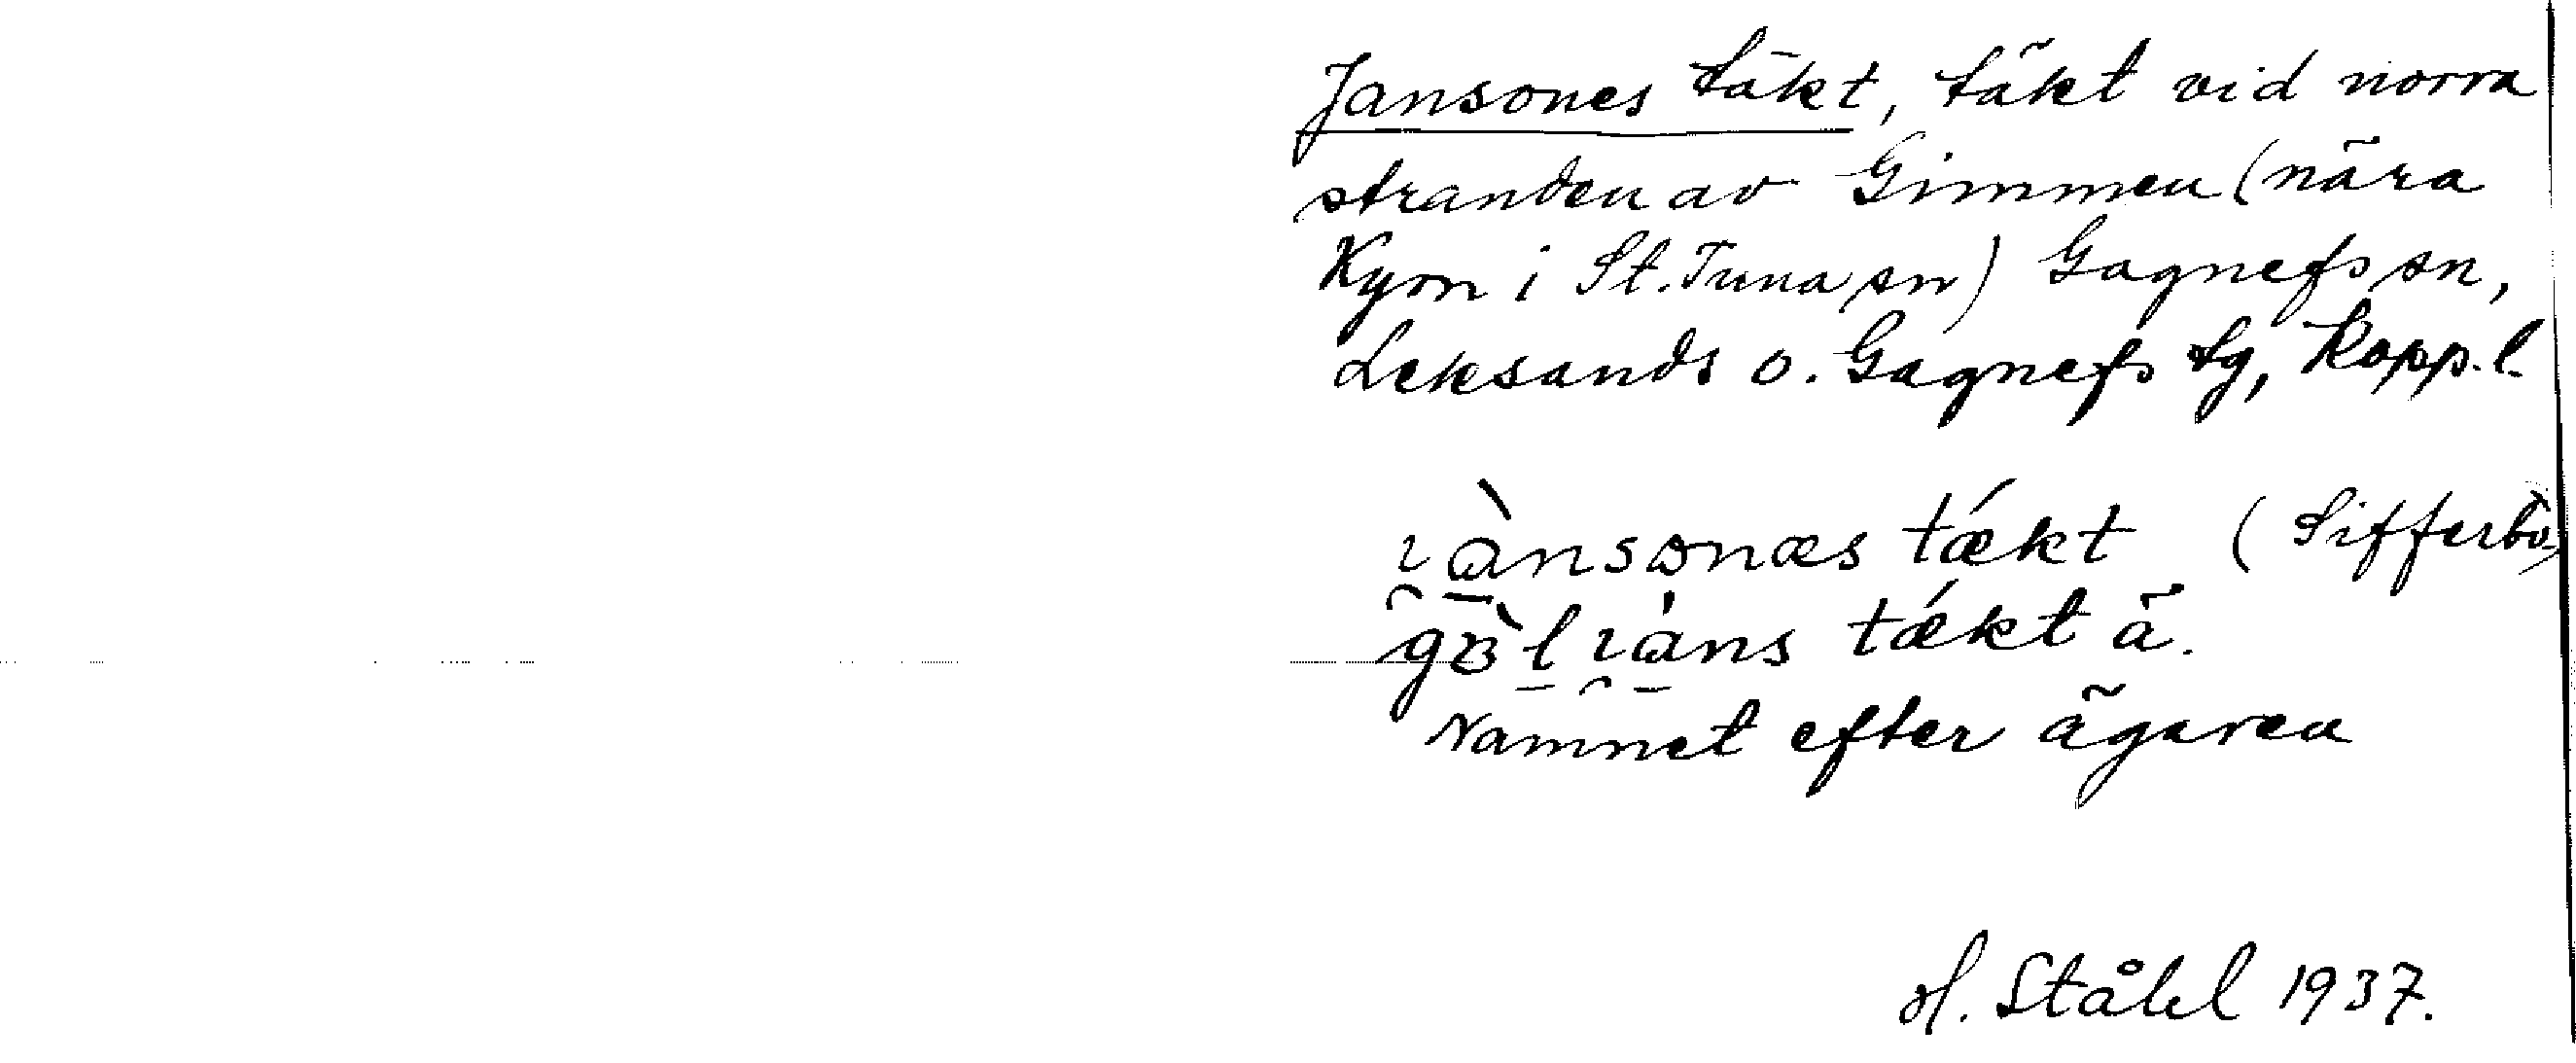 Jansones täkt, täkt vid norra
stranden av Gimmen (nära
Kyrn i St. Tuna sn) Gagnefs sn,
Leksands o. Gagnefs tg, Kopp. l.
ɿànsɷnæs tǽkt (Sifferbo)
ɿàns tǽkt ä.
Namnet efter ägaren
H. Ståhl 1937.